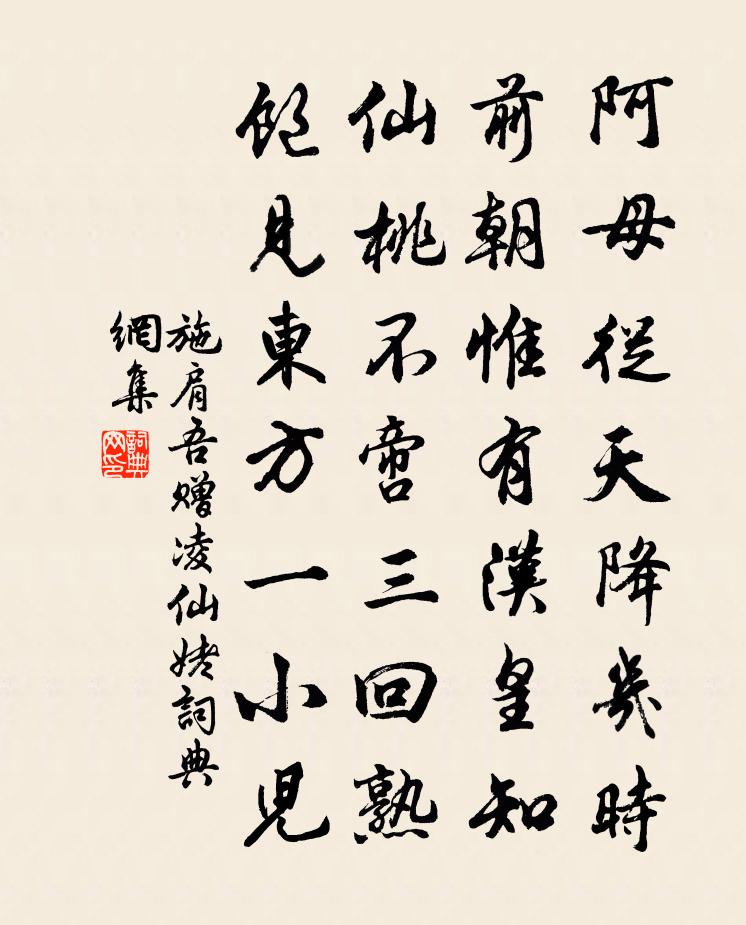 阿母從天降幾時
前朝惟有漢皇知
仙桃不啻三回熟
飽見東方一小兒
施肩吾贈凌仙姥詞典
網集
詞典网印